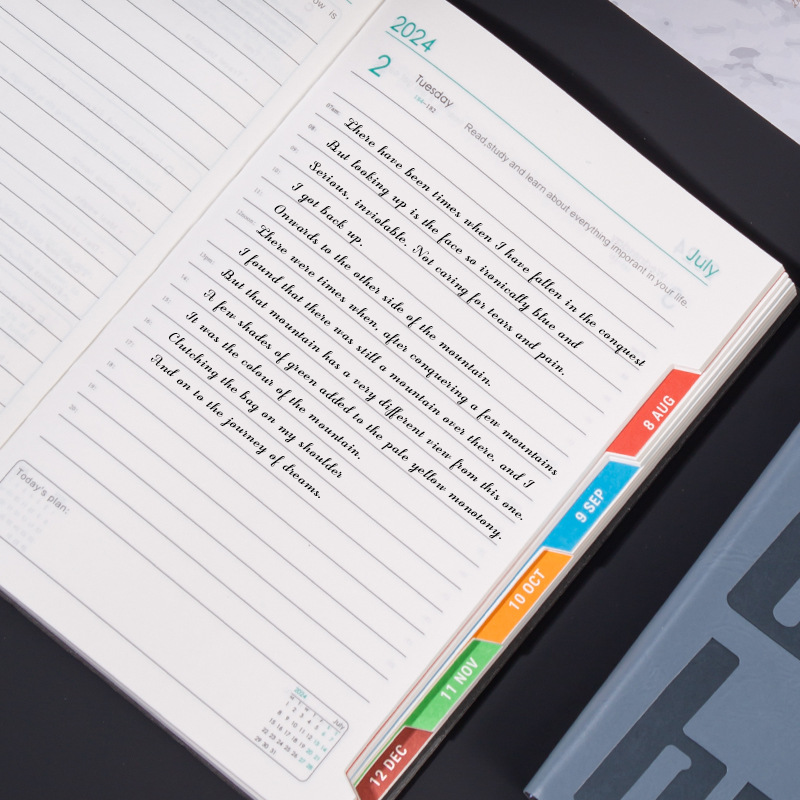 ow is
2024
2
Tuesday
184-182
Read,study and learn about everything imporant in your life.
July
There have been times when I have fallen in the conquest
But looking up is the face so ironically blue and
Serious, inviolable, Not caring for tears and pain.
I got back up.
Onwards to the other side of the mountain.
There were times when, after conquering a few mountains
I found that there was still a mountain over there, and I
But that mountain has a very different view from this one.
A few shades of green added to the pale yellow monotony.
It was the colour of the mountain.
Clutching the bag on my shoulder
And on to the journey of dreams.
Today's plan:
8 AUG
9 SEP
10 OCT
11 NOV
12 DEC
2024
July